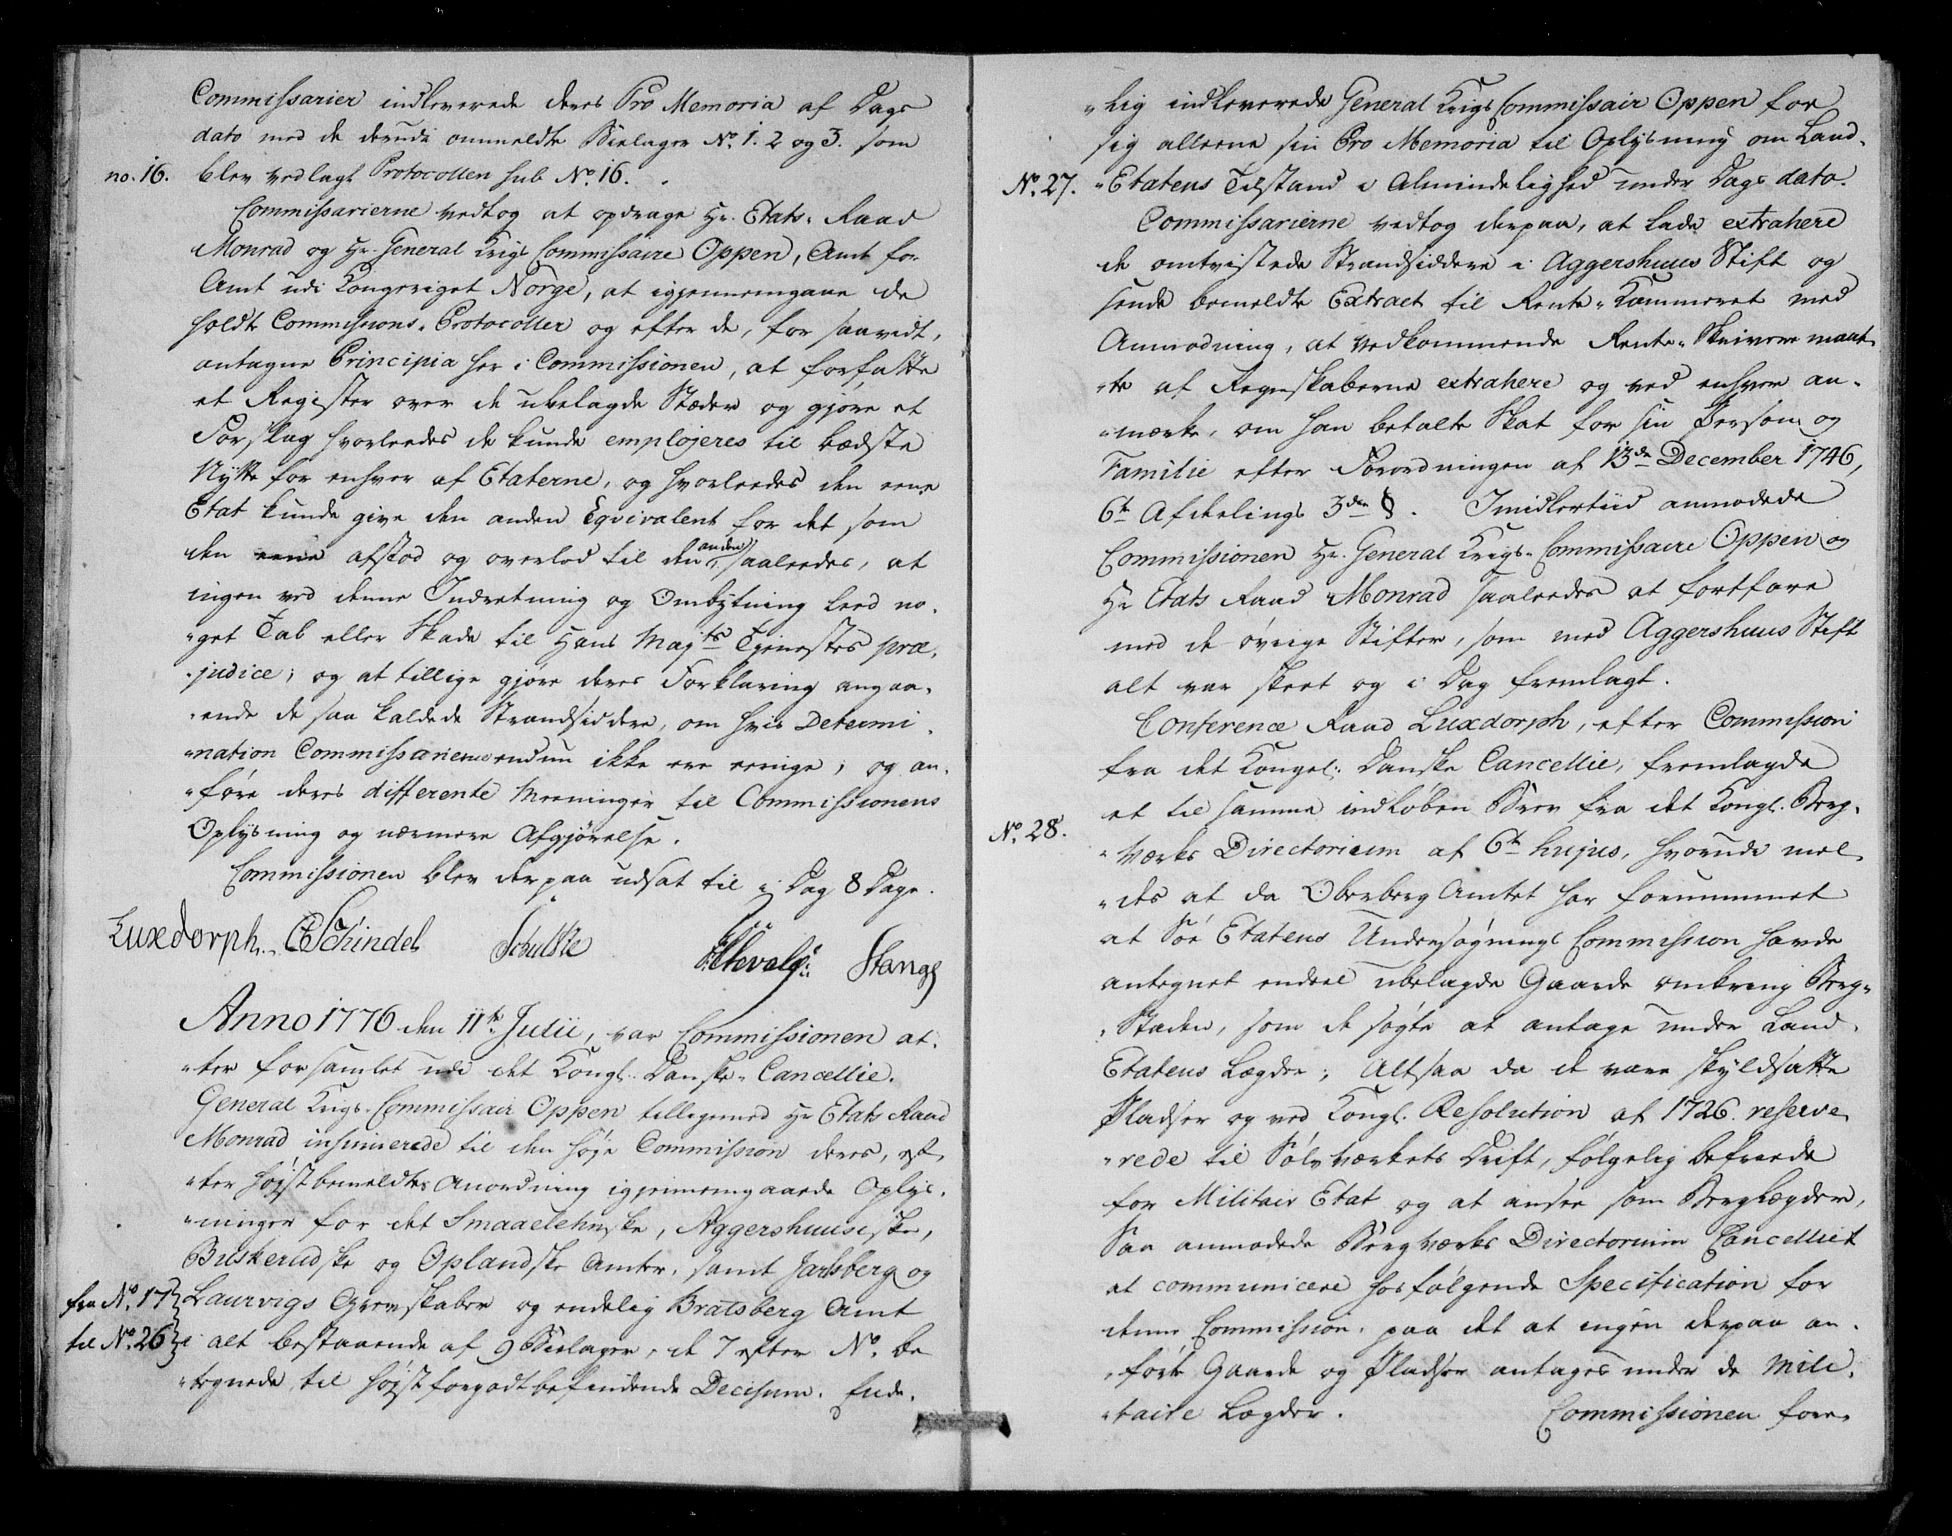 Commissarier indleverede deres Pro Memoria af Dags
dato med de derudi ommeldte Bielager No. 1. 2 og 3. som
no. 16. blev vedlagt Protocollen sub No. 16.
Commissarierne vedtog at opdrage Hr. Etats-Raad
Monrad og Hr. General Krigs Commissaire Oppen, Amt for
Amt udi Kongeriget Norge, at igjennemgaae de
holdte Commissions-Protocoller og efter de, for saavidt,
antagne Principia her i Commissionen, at forfatte
et Register over de ubelagde Stæder og gjøre et
Forslag hvorledes de kunde emplojeres til bedste
Nytte for enhver af Etaterne, og hvorledes den eene
Etat kunde give den anden Eqvivalent for det som
den eene afstod og overlod til den anden, saaledes, at
ingen ved denne Indretning og Ombytning leed no-
get Tab eller Skade til Hans Majts Tjenestes præ-
judice; og at tillige gjøre deres Forklaring angaa-
ende de saa kaldede Strandsiddere, om hvis Determi-
nation Commissarierne endnu ikke ere eenige; og an-
føre deres differente Meeninger til Commissionens
Oplysning og nærmere Afgjørelse.
Commissionen blev derpaa udsat til i Dag 8 Dage.
Luxdorph. Schindel Schultze Stange
Anno 1776 den 11te Julii, var Commissionen at-
ter forsamlet udi det Kongl. Danske-Cancellie.
General Krigs-Commissair Oppen tilligemed Hr Etats Raad
Monrad insinuerede til den høje Commission deres, ef-
ter højstbemeldtes Anordning igjennemgaaede Oplys-
ninger for det Smaalehnske, Aggershuusiske,
Buskerudske og Oplandske Amter, samt Jarlsberg og
fra No. 17 Laurvigs Grevskaber og endelig Bratsberg Amt
til No. 26 i alt bestaaende af 9 Bielager, de 7 efter No. be-
tegnede til højstforgodtbefindende Decisum. Ende-
lig indleverede General Krigs Commissair Oppen for
sig alleene sin Pro Memoria til Oplysning om Land-
No. 27. Etatens Tilstand i Almindelighed under Dags dato.
Commissarierne vedtog derpaa, at lade extrahere
de omtvistede Strandsiddere i Aggershuus Stift og
sende bemeldte Extract til Rente-Kammeret med
Anmodning, at vedkommende Rente-Skrivere maat-
te af Regnskaberne extrahere og ved enhver an-
mærke, om han betalte Skat for sin Person og
Familie efter Forordningen af 13de December 1746,
6te Afdelings 3die §. Imidlertiid anmodede
Commissionen Hr. General Krigs-Commissaire Oppen og
Hr Etats Raad Monrad saaledes at fortfare
med de øvrige Stifter, som med Aggershuus Stift
alt var skeet og i Dag fremlagt.
Conference Raad Luxdorph, efter Commission
fra det Kongel. Danske Cancellie, fremlagde
et til samme indløben Brev fra det Kongl. Berg-
No. 28. Værks Directorium af 6te hujus, hvorudi mel-
des at da Oberberg Amtet har fornummet
at Søe Etatens Undersøgnings Commission havde
antegnet endeel ubelagde Gaarde omkring Berg-
Staden, som de søgte at antage under Land-
Etatens Lægder; Altsaa da de vare skyldsatte
Pladser og ved Kongl. Resolution af 1726. reserve-
rede til Sølv Værkets Drift, følgelig befriede
for Militair Etat og at ansee som Berglægder,
Saa anmodede BergVærks Directorium Cancelliet
at communicere hosfølgende Specification for
denne Commission, paa det at ingen derpaa an-
førte Gaarde og Pladser antages under de Mili-
taire Lægder. Commissionen fore-